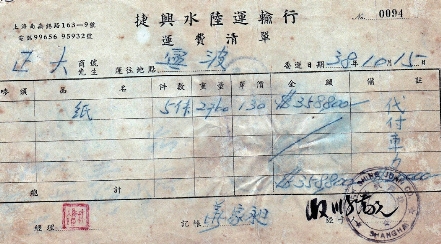 捷興水陸運輸行
No. 0094
運費清單
電話99656 95932號
正大 商號 先生 運往地點 寧波 委運日期 38年10月15日
嘜頭 品名 件數 重量 單價 金額 備註
紙 5件 2760 130 358800 代付車力
總計 358800
經理 記帳 經手
SHANGHAI